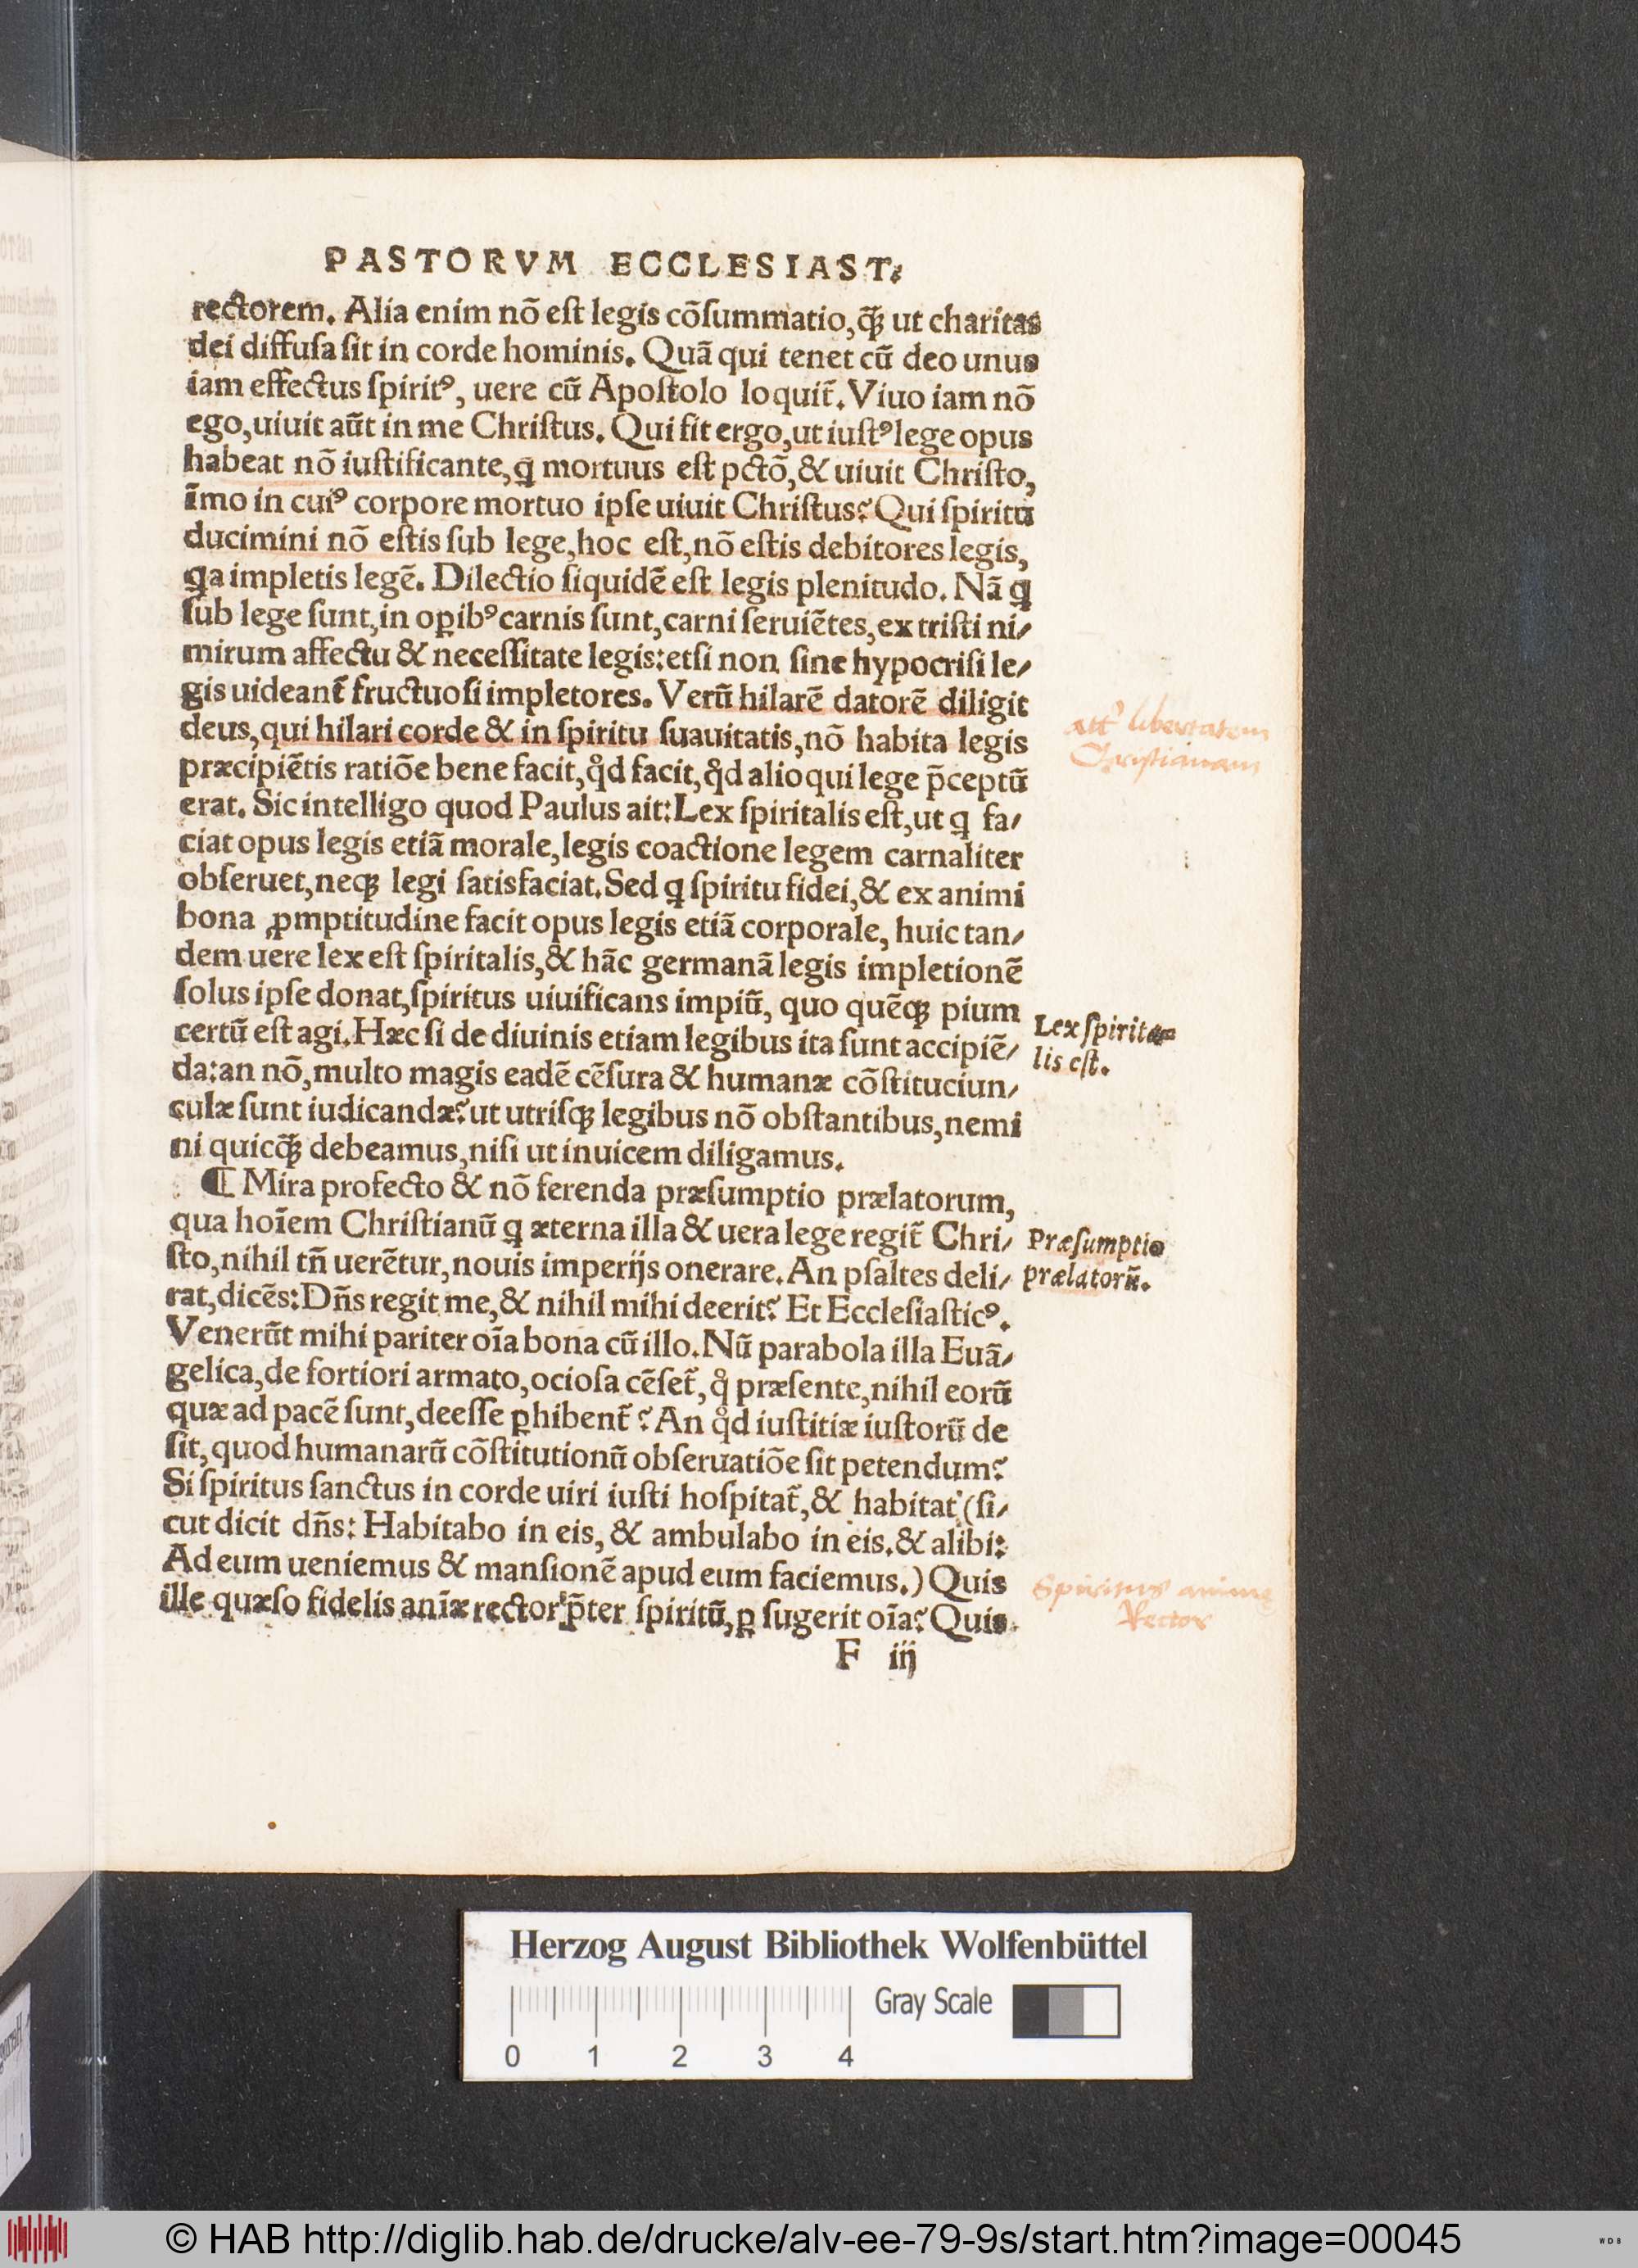 PASTORVM ECCLESIAST.
rectorem. Alia enim nõ eſt legis cõſummatio, q̃ꝫ ut charitas
dei diffuſa ſit in corde hominis. Quã qui tenet cũ deo unus
iam effectus ſpiritꝰ, uere cũ Apoſtolo loquit̃. Viuo iam nõ
ego, uiuit aũt in me Chriſtus. Qui fit ergo, ut iuſtꝰ lege opus
habeat nõ iuſtificante, q̃ mortuus eſt pctõ, & uiuit Chriſto,
ĩmo in cuiꝰ corpore mortuo ipſe uiuit Chriſtus? Qui ſpiritu
ducimini nõ eſtis ſub lege, hoc eſt, nõ eſtis debitores legis,
q̃a impletis legẽ. Dilectio ſiquidẽ eſt legis plenitudo. Nã q̃
ſub lege ſunt, in oꝑibꝰ carnis ſunt, carni ſeruiẽtes, ex triſti ni/
mirum affectu & neceſſitate legis: etſi non ſine hypocriſi le/
gis uideant̃ fructuoſi impletores. Verũ hilarẽ datorẽ diligit
deus, qui hilari corde & in ſpiritu ſuauitatis, nõ habita legis
præcipiẽtis ratiõe bene facit, qd̊ facit, qd̊ alioqui lege p̃ceptũ
erat. Sic intelligo quod Paulus ait: Lex ſpiritalis eſt, ut q̃ fa/
ciat opus legis etiã morale, legis coactione legem carnaliter
obſeruet, neqꝫ legi ſatisfaciat. Sed q̃ ſpiritu fidei, & ex animi
bona ꝓmptitudine facit opus legis etiã corporale, huic tan/
dem uere lex eſt ſpiritalis, & hãc germanã legis impletionẽ
ſolus ipſe donat, ſpiritus uiuificans impiũ, quo quẽqꝫ pium
certũ eſt agi. Hæc ſi de diuinis etiam legibus ita ſunt accipiẽ/
da: an nõ, multo magis eadẽ cẽſura & humanæ cõſtituciun/
culæ ſunt iudicandæ? ut utriſqꝫ legibus nõ obſtantibus, nemi
ni quicq̃ꝫ debeamus, niſi ut inuicem diligamus.
¶ Mira profecto & nõ ferenda præſumptio prælatorum,
qua hoĩem Chriſtianũ q̃ æterna illa & uera lege regit̃ Chri/
ſto, nihil tñ uerẽtur, nouis imperijs onerare. An pſaltes deli/
rat, dicẽs: Dñs regit me, & nihil mihi deerit? Et Eccleſiaſticꝰ.
Venerũt mihi pariter oĩa bona cũ illo. Nũ parabola illa Euã/
gelica, de fortiori armato, ocioſa cẽſet̃, q̊ præſente, nihil eorũ
quæ ad pacẽ ſunt, deeſſe ꝑhibent̃? An qd̊ iuſtitiæ iuſtorũ de
ſit, quod humanarũ cõſtitutionũ obſeruatiõe ſit petendum?
Si ſpiritus ſanctus in corde uiri iuſti hoſpitat̃, & habitat (ſi/
cut dicit dñs: Habitabo in eis, & ambulabo in eis. & alibi:
Ad eum ueniemus & manſionẽ apud eum faciemus.) Quis
ille quæſo fidelis anĩæ rector p̃ter ſpiritũ, ꝑ ſugerit oĩa? Quis
F iij
libertatem
Christianam
Lex ſpirita=
lis eſt.
Præſumptio
prælatorũ.
Spiritus anime
Rector
Herzog August Bibliothek Wolfenbüttel
Gray Scale
0 1 2 3 4
© HAB http://diglib.hab.de/drucke/alv-ee-79-9s/start.htm?image=00045
WDB